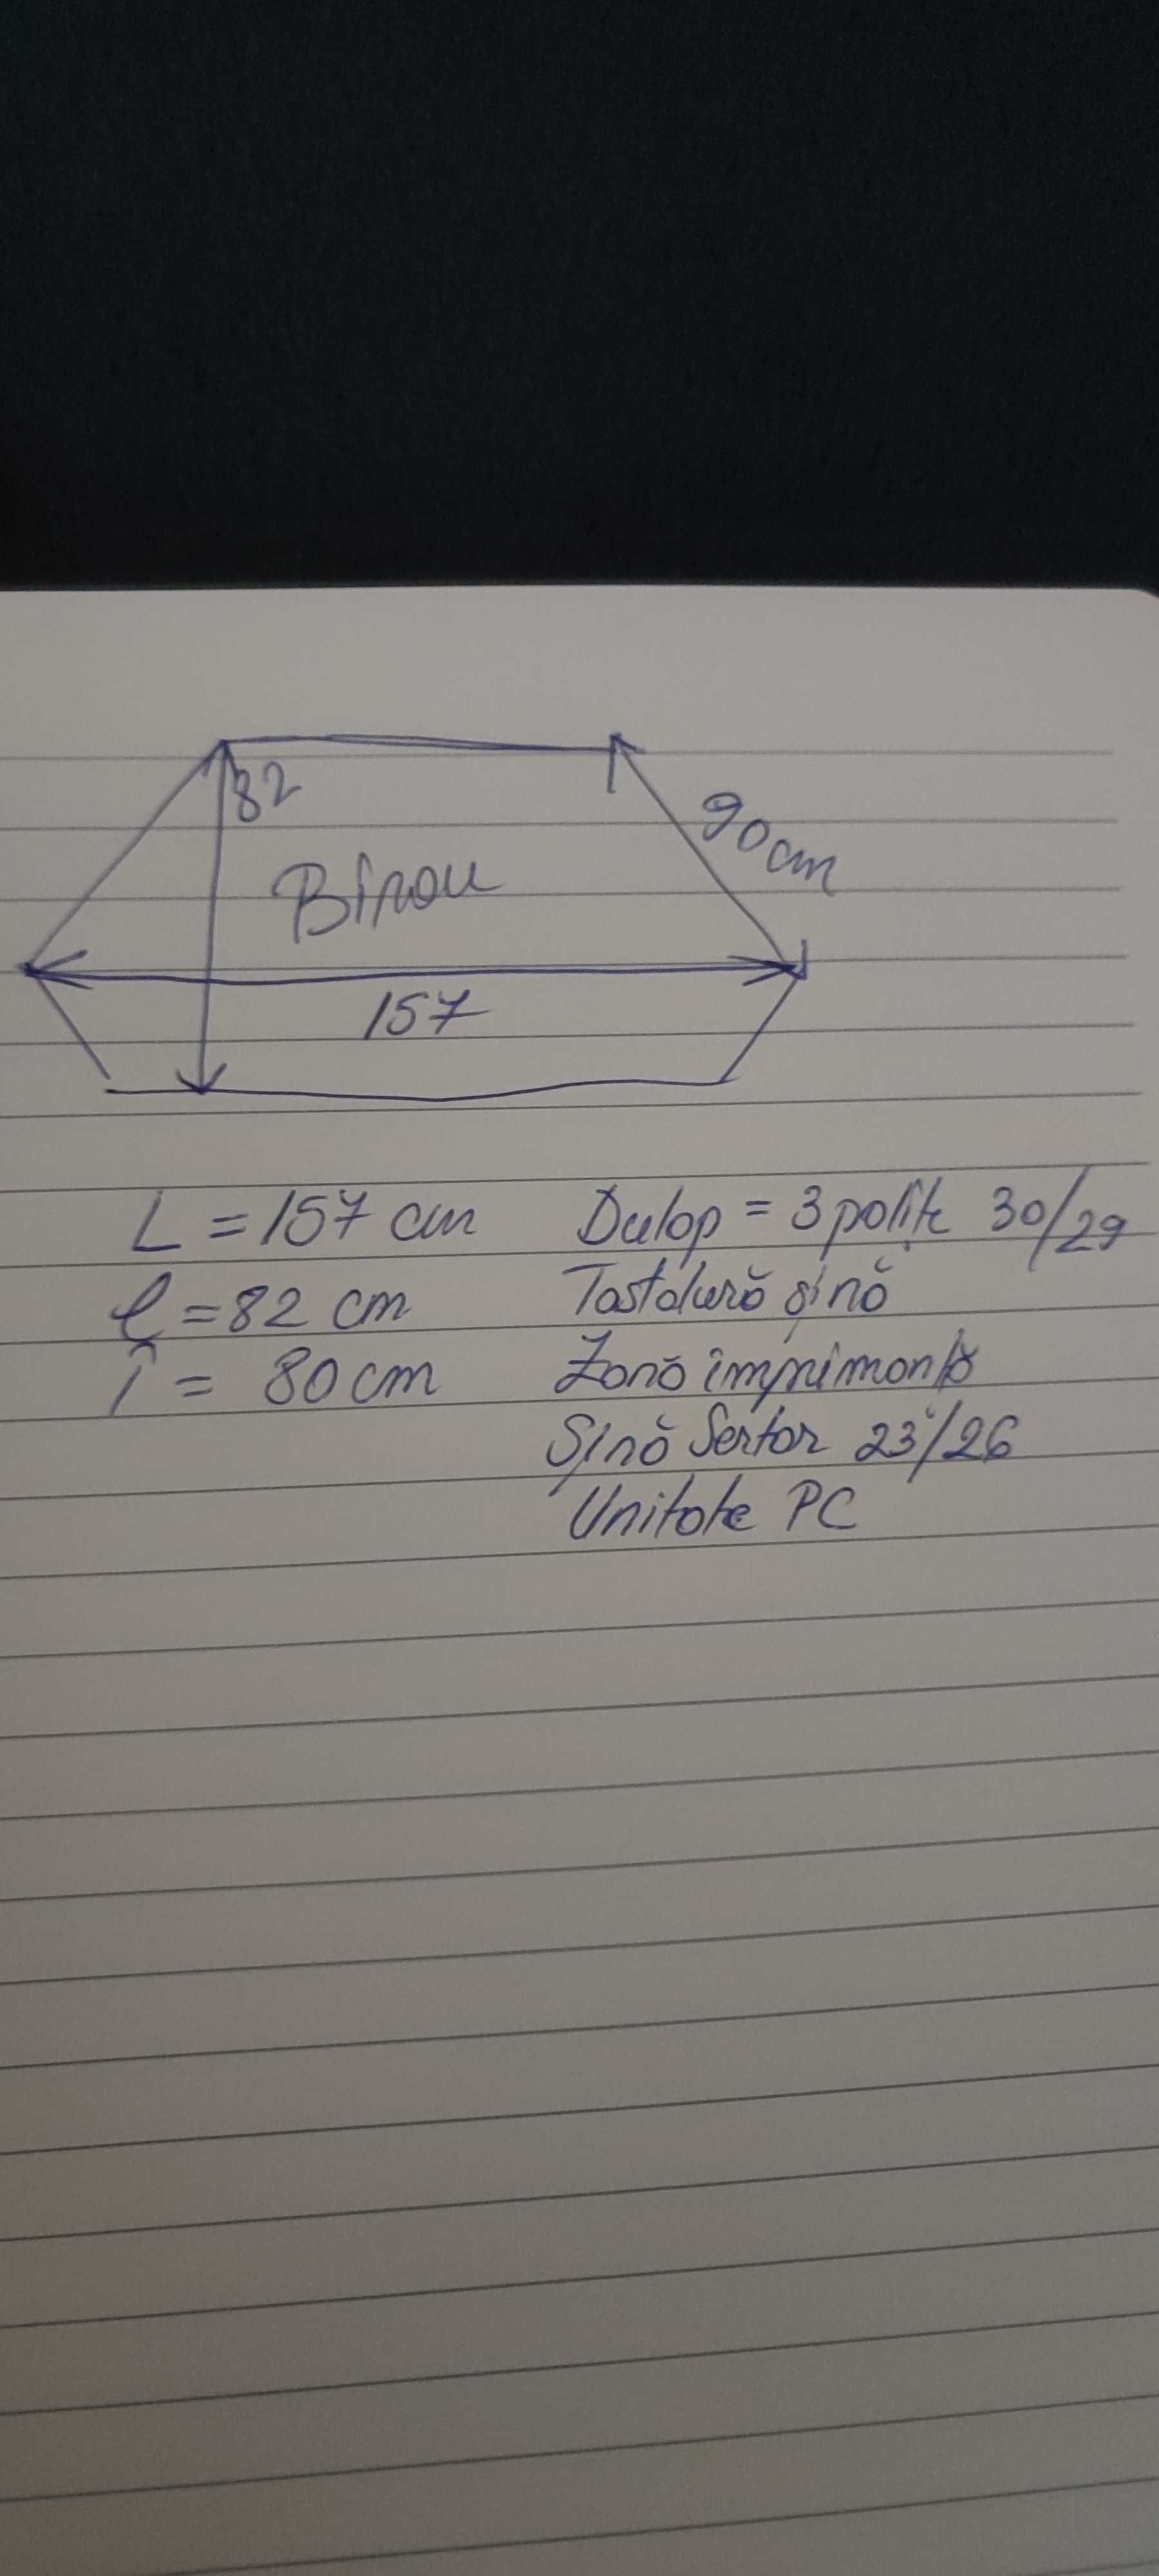 82
90cm
Birou
157
L = 157 cm
l = 82 cm
î = 80 cm
Dulap = 3 polițe 30/29
Tastatură șină
Zonă imprimantă
Șină Sertar 23/26
Unitate PC